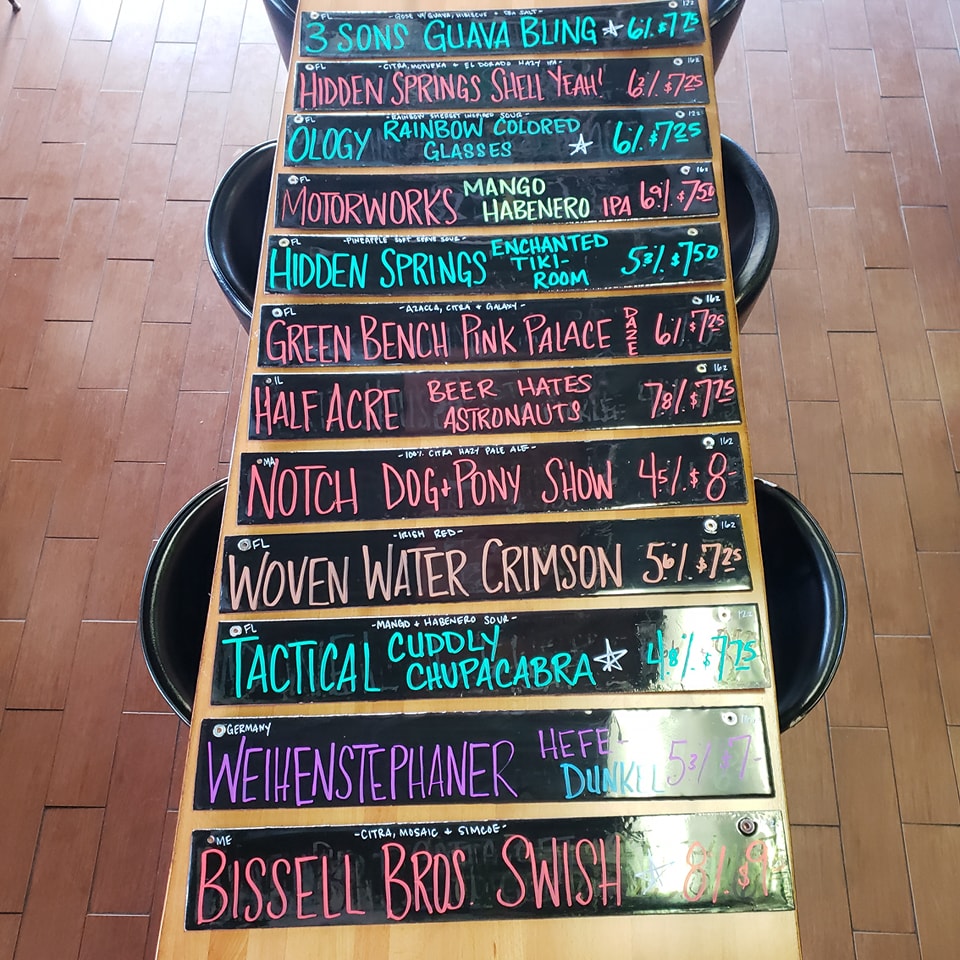 FL - GOSE W/ GUAVA, HIBISCUS + SEA SALT - 12z
3 SONS GUAVA BLING ☆ 6% $7.75
FL - CITRA, MOTUEKA + EL DORADO HAZY IPA - 16z
HIDDEN SPRINGS SHELL YEAH! 6.2% $7.25
FL - RAINBOW SHERBET INSPIRED SOUR - 12z
OLOGY RAINBOW COLORED GLASSES ☆ 6% $7.25
FL 16z
MOTORWORKS MANGO HABENERO IPA 6.9% $7.50
FL - PINEAPPLE SOFT SERVE SOUR -
HIDDEN SPRINGS ENCHANTED TIKI-ROOM 5.3% $7.50
FL - AZACCA, CITRA + GALAXY - 16z
GREEN BENCH PINK PALACE DAZE 6% $7.25
IL 16z
HALF ACRE BEER HATES ASTRONAUTS 7.8% $7.75
MA - 100% CITRA HAZY PALE ALE - 16z
NOTCH DOG + PONY SHOW 4.5% $8-
FL - IRISH RED - 16z
WOVEN WATER CRIMSON 5.6% $7.25
FL - MANGO + HABENERO SOUR - 12z
TACTICAL CUDDLY CHUPACABRA ☆ 4.8% $7.75
GERMANY
WEIHENSTEPHANER HEFE-DUNKEL 5.3% $7-
ME - CITRA, MOSAIC + SIMCOE -
BISSELL BROS. SWISH ☆ 8% $9-